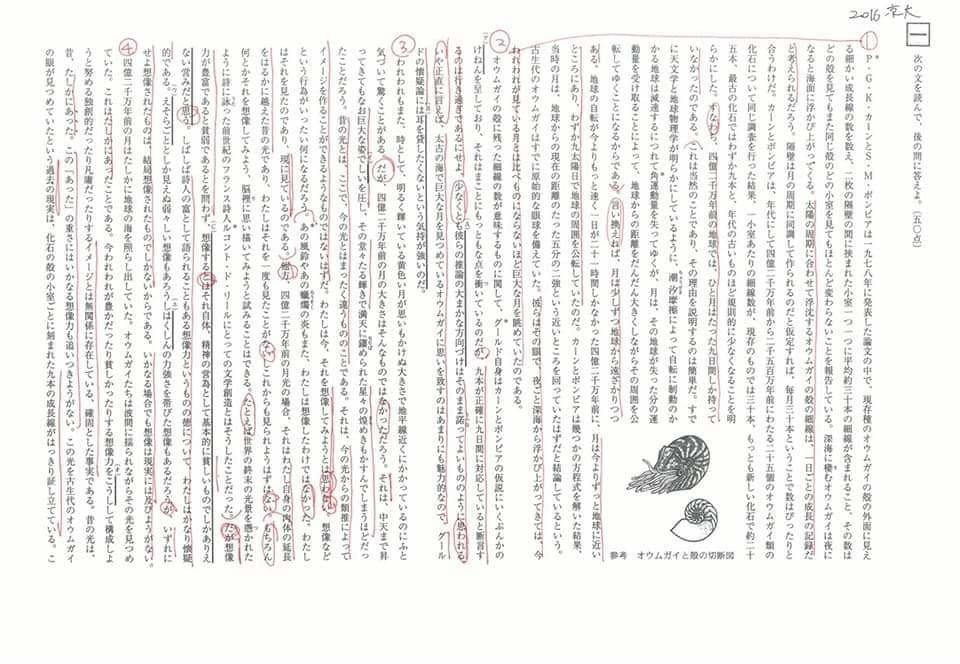 2016 京大
一
次の文を読んで、後の問に答えよ。(五〇点)
① P・G・K・カーンとS・M・ポンピアは一九七八年に発表した論文の中で、現存種のオウムガイの殻の外面に見え
る細かい成長線の数を数え、二枚の隔壁の間に挟まれた小室一つ一つに平均約三十本の細線が含まれること、その数は
どの殻を見てもまた同じ殻のどの小室を見てもほとんど変わらないことを報告している。深海に棲むオウムガイは夜に
なると海面に浮かび上がってくる。太陽の周期に合わせて浮沈するオウムガイの殻の細線は、一日ごとの成長の記録だ
と考えられるだろう。隔壁は月の周期に同調して作られるのだと仮定すれば、毎月三十本ということで数はぴったりと
合うわけだ。カーンとポンピアは、年代にして四億二千万年前から二千五百万年前にわたる二十五個のオウムガイ類の
化石について同じ調査を行った結果、一小室あたりの細線数が、現存のものでは三十本、もっとも新しい化石で約二十
五本、最古の化石ではわずか九本と、年代の古いものほど規則的に少なくなることを明
らかにした。すなわち、四億二千万年前の地球では、ひと月はたった九日間しか持って
いなかったのである。これは当然のことであり、その理由を説明するのは簡単だ。すで
に天文学と地球物理学が明らかにしているように、潮汐摩擦によって自転に制動のか
かる地球は減速するにつれて角運動量を失ってゆくが、月は、その地球が失った分の運
動量を受け取ることによって、地球からの距離をだんだん大きくしながらその周囲を公
転してゆくことになるからである。言い換えれば、月は少しずつ地球から遠ざかりつつ
ある。地球の自転が今よりもっと速く一日が二十一時間しかなかった四億二千万年前に、月は今よりずっと地球に近い
ところにあり、わずか九太陽日で地球の周囲を公転していたのだ。カーンとポンピアは幾つかの方程式を解いた結果、
当時の月は、地球からの現在の距離のたった五分の二強という近いところを回っていたはずだと結論しているという。
古生代のオウムガイはすでに原始的な眼球を備えていた。彼らはその眼で、夜ごと深海から浮かび上がってきては、今
われわれが見ている月とは比べものにならないほど巨大な月を眺めていたのである。
② オウムガイの殻に残った細線の数が意味するものに関して、グールド自身はカーンとポンピアの仮説にいくぶんかの
けねんを呈しており、それはまことにもっともな点を衝いているのだが、九本が正確に九日間に対応していると断言す
るのは行き過ぎであるにせよ、少なくとも彼らの推論の大まかな方向づけはそのまま諾ってよいもののように思われる
いや正直に言えば、太古の海で巨大な月を見つめているオウムガイに思いを致すのはあまりにも魅力的なので、グール
ドの懐疑論には耳を貸したくないという気持が強いのだ。
③ われわれもまた、時として、明るく輝いている黄色い月が思いもかけぬ大きさで地平線近くにかかっているのにふと
気づいて驚くことがある。だが、四億二千万年前の月の大きさはそんなものではなかっただろう。それは、中天まで昇
ってきてもなお巨大な姿でしいを圧し、その堂々たる輝きで満天に鏤められた星々の煌めきもかすんでしまうほどだっ
たことだろう。昔の光とは、ここで、今の光とはまったく違うもののことである。それは、今の光からの類推によって
イメージを作ることができるようなものではないはずだ。わたしは今、それを想像してみようとは思わない。想像など
という行為がいったい何になるだろう。あの風鈴やあの蠟燭の炎もまた、わたしは想像したわけではなかった。わたし
はそれを見たのであり、現に見ているのである。他方、四億二千万年前の月光の場合、それはわたし自身の肉体の延長
をはるかに越えた昔の光であり、わたしはそれを一度も見たことがないしこれからも見られようはずはない。もちろん
何とかそれを想像してみよう、脳裡に思い描いてみようと試みることはできる。たとえば世界の終末の光景を憑かれた
ように詩に詠った前世紀のフランス詩人ルコント・ド・リールにとっての文学創造とはそうしたことだった。だが想像
力が豊富であると貧弱であるとを問わず、想像するとはそれ自体、精神の営為として基本的に貧しいものでしかありえ
ない営みだと思う。しばしば詩人の富として語られることもある想像力というものの徳について、わたしはかなり懐疑
的である。えそらごととしか見えぬ弱々しい想像もあろうしはくしんの力強さを帯びた想像もあるだろうが、いずれに
せよ想像されたものは、結局想像されたものでしかないからである。いかなる場合でも想像は現実には及びようがない。
④ 四億二千万年前の月はたしかに地球の海を照らし出していた。オウムガイたちは波間に揺られながらその光を見つめ
ていた。これはたしかにあったことである。今われわれが豊かだったり貧しかったりする想像力をこうして構成しよ
うと努める独創的だったり凡庸だったりするイメージとは無関係に存在している、確固とした事実である。昔の光は、
昔、たしかにあった。この「あった」の重さにはいかなる想像力も追いつきようがない。この光を古生代のオウムガイ
の眼が見つめていたという過去の現実は、化石の殻の小室ごとに刻まれた九本の成長線がはっきり証し立てている。こ
参考 オウムガイと殻の切断図